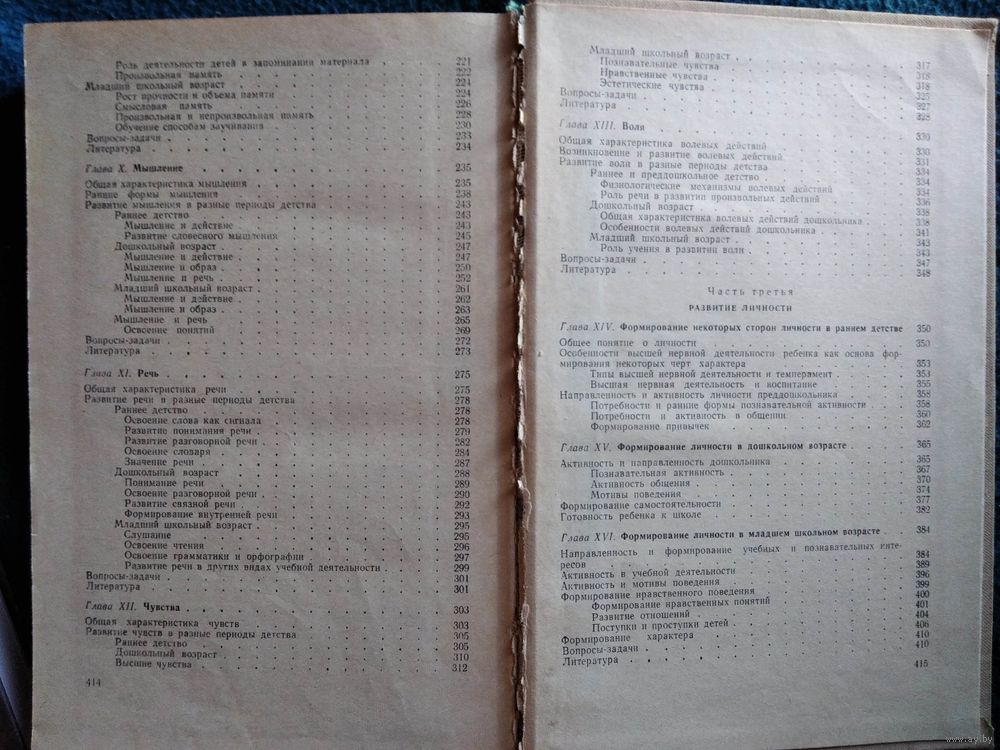 Роль деятельности детей в запоминании материала . . . . . 221
Произвольная память . . . . . 222
Младший школьный возраст . . . . . 224
Рост прочности и объема памяти . . . . . 224
Смысловая память . . . . . 226
Произвольная и непроизвольная память . . . . . 228
Обучение способам заучивания . . . . . 230
Вопросы-задачи . . . . . 233
Литература . . . . . 234
Глава X. Мышление . . . . . 235
Общая характеристика мышления . . . . . 235
Ранние формы мышления . . . . . 238
Развитие мышления в разные периоды детства . . . . . 243
Раннее детство . . . . . 243
Мышление и действие . . . . . 243
Развитие словесного мышления . . . . . 245
Дошкольный возраст . . . . . 247
Мышление и действие . . . . . 247
Мышление и образ . . . . . 250
Мышление и речь . . . . . 252
Младший школьный возраст . . . . . 261
Мышление и действие . . . . . 262
Мышление и образ . . . . . 263
Мышление и речь . . . . . 265
Освоение понятий . . . . . 269
Вопросы-задачи . . . . . 272
Литература . . . . . 273
Глава XI. Речь . . . . . 275
Общая характеристика речи . . . . . 275
Развитие речи в разные периоды детства . . . . . 278
Раннее детство . . . . . 278
Освоение слова как сигнала . . . . . 278
Развитие понимания речи . . . . . 279
Развитие разговорной речи . . . . . 282
Освоение словаря . . . . . 284
Значение речи . . . . . 287
Дошкольный возраст . . . . . 288
Понимание речи . . . . . 289
Освоение разговорной речи . . . . . 290
Развитие связной речи . . . . . 292
Формирование внутренней речи . . . . . 293
Младший школьный возраст . . . . . 295
Слушание . . . . . 295
Освоение чтения . . . . . 296
Освоение грамматики и орфографии . . . . . 297
Развитие речи в других видах учебной деятельности . . . . . 299
Вопросы-задачи . . . . . 301
Литература . . . . . 301
Глава XII. Чувства . . . . . 303
Общая характеристика чувств . . . . . 303
Развитие чувств в разные периоды детства . . . . . 305
Раннее детство . . . . . 305
Дошкольный возраст . . . . . 310
Высшие чувства . . . . . 312
414
Младший школьный возраст . . . . . 317
Познавательные чувства . . . . . 318
Нравственные чувства . . . . . 318
Эстетические чувства . . . . . 325
Вопросы-задачи . . . . . 327
Литература . . . . . 328
Глава XIII. Воля . . . . . 330
Общая характеристика волевых действий . . . . . 330
Возникновение и развитие волевых действий . . . . . 331
Развитие воли в разные периоды детства . . . . . 334
Раннее и преддошкольное детство . . . . . 334
Физиологические механизмы волевых действий . . . . . 334
Роль речи в развитии произвольных действий . . . . . 336
Дошкольный возраст . . . . . 338
Общая характеристика волевых действий дошкольника . . . . . 338
Особенности волевых действий дошкольника . . . . . 341
Младший школьный возраст . . . . . 343
Роль учения в развитии воли . . . . . 343
Вопросы-задачи . . . . . 347
Литература . . . . . 348
Часть третья
РАЗВИТИЕ ЛИЧНОСТИ
Глава XIV. Формирование некоторых сторон личности в раннем детстве 350
Общее понятие о личности . . . . . 350
Особенности высшей нервной деятельности ребенка как основа фор-
мирования некоторых черт характера . . . . . 353
Типы высшей нервной деятельности и темперамент . . . . . 353
Высшая нервная деятельность и воспитание . . . . . 355
Направленность и активность личности преддошкольника . . . . . 358
Потребности и ранние формы познавательной активности . . . . . 358
Потребности и активность в общении . . . . . 360
Формирование привычек . . . . . 362
Глава XV. Формирование личности в дошкольном возрасте . 365
Активность и направленность дошкольника . . . . . 365
Познавательная активность . . . . . 367
Активность общения . . . . . 370
Мотивы поведения . . . . . 374
Формирование самостоятельности . . . . . 377
Готовность ребенка к школе . . . . . 382
Глава XVI. Формирование личности в младшем школьном возрасте . 384
Направленность и формирование учебных и познавательных инте-
ресов . . . . . 384
Активность в учебной деятельности . . . . . 389
Активность и мотивы поведения . . . . . 396
Формирование нравственного поведения . . . . . 399
Формирование нравственных понятий . . . . . 400
Развитие отношений . . . . . 401
Поступки и проступки детей . . . . . 404
Формирование характера . . . . . 406
Вопросы-задачи . . . . . 410
Литература . . . . . 410
415
www.ay.by